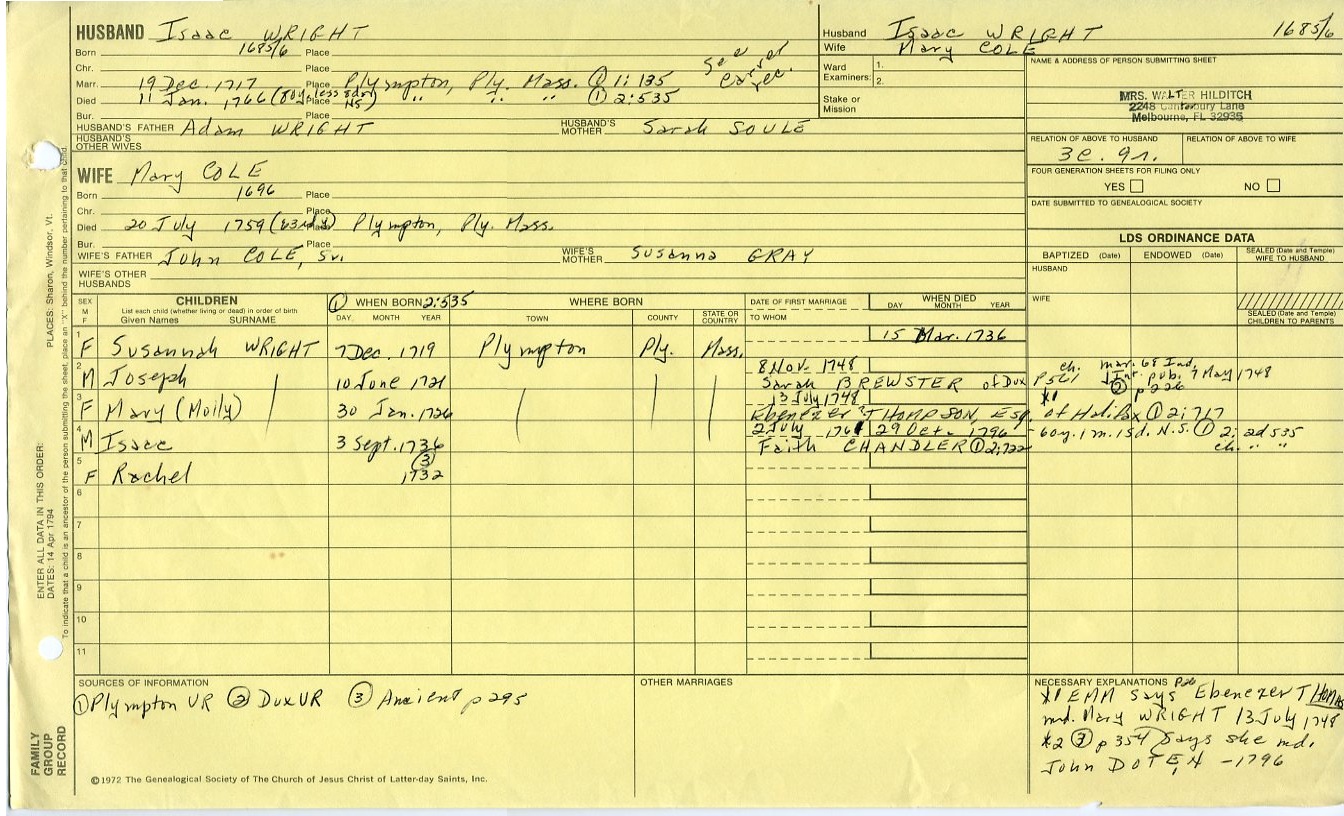 HUSBAND Isaac WRIGHT
Born 1685/6 Place
Chr. Place
Marr. 19 Dec. 1717 Place Plympton, Ply. Mass. ① 1:135
Died 11 Jan. 1766 (80y. less 8dy. NS) Place " " " ① 2:535
See Carvel rec.
Bur. Place
HUSBAND'S FATHER Adam WRIGHT HUSBAND'S MOTHER Sarah SOULE
HUSBAND'S OTHER WIVES
WIFE Mary COLE
Born 1696 Place
Chr. Place
Died 20 July 1759 (63rd y) Place Plympton, Ply. Mass.
Bur. Place
WIFE'S FATHER John COLE, Sr. WIFE'S MOTHER Susanna GRAY
WIFE'S OTHER HUSBANDS
Husband Isaac WRIGHT 1685/6
Wife Mary COLE
Ward 1.
Examiners: 2.
Stake or Mission
NAME & ADDRESS OF PERSON SUBMITTING SHEET
MRS. WALTER HILDITCH
2248 Canterbury Lane
Melbourne, FL 32935
RELATION OF ABOVE TO HUSBAND RELATION OF ABOVE TO WIFE
3c. 9r.
FOUR GENERATION SHEETS FOR FILING ONLY
YES NO
DATE SUBMITTED TO GENEALOGICAL SOCIETY
LDS ORDINANCE DATA
BAPTIZED (Date) ENDOWED (Date) SEALED (Date and Temple) WIFE TO HUSBAND
HUSBAND
WIFE
SEALED (Date and Temple) CHILDREN TO PARENTS
SEX M F CHILDREN ① WHEN BORN 2:535 WHERE BORN DATE OF FIRST MARRIAGE WHEN DIED
List each child (whether living or dead) in order of birth
Given Names SURNAME DAY MONTH YEAR TOWN COUNTY STATE OR COUNTRY TO WHOM DAY MONTH YEAR
1 F Susannah WRIGHT 7 Dec. 1719 Plympton Ply. Mass. 15 Mar. 1736
2 M Joseph 10 June 1721 8 Nov. 1748 Sarah BREWSTER of Dux p561 ch. mar. 68 Ind. Int. pub. 7 May 1748 ② p226
3 F Mary (Molly) 30 Jan. 1726 13 July 1748 Ebenezer THOMPSON, Esq. of Halifax ① 2:717 *1
4 M Isaac 3 Sept. 1736 2 July 1761 29 Oct. 1796 - 60y. 1m. 15d. N.S. ① 2:535
Faith CHANDLER ① 2:722 ch. " "
5 F Rachel ③ 1732
6
7
8
9
10
11
SOURCES OF INFORMATION
① Plympton VR ② Dux VR ③ Ancient p 295
OTHER MARRIAGES
NECESSARY EXPLANATIONS
*1 EMM p26 says Ebenezer THOMAS
md. Mary WRIGHT 13 July 1748
*2 ③ p 354 says she md.
John DOTEN -1796
©1972 The Genealogical Society of The Church of Jesus Christ of Latter-day Saints, Inc.
FAMILY GROUP RECORD
ENTER ALL DATA IN THIS ORDER:
DATES: 14 Apr 1794
PLACES: Sharon, Windsor, Vt.
To indicate that a child is an ancestor of the person submitting the sheet, place an "X" behind the number pertaining to that child.